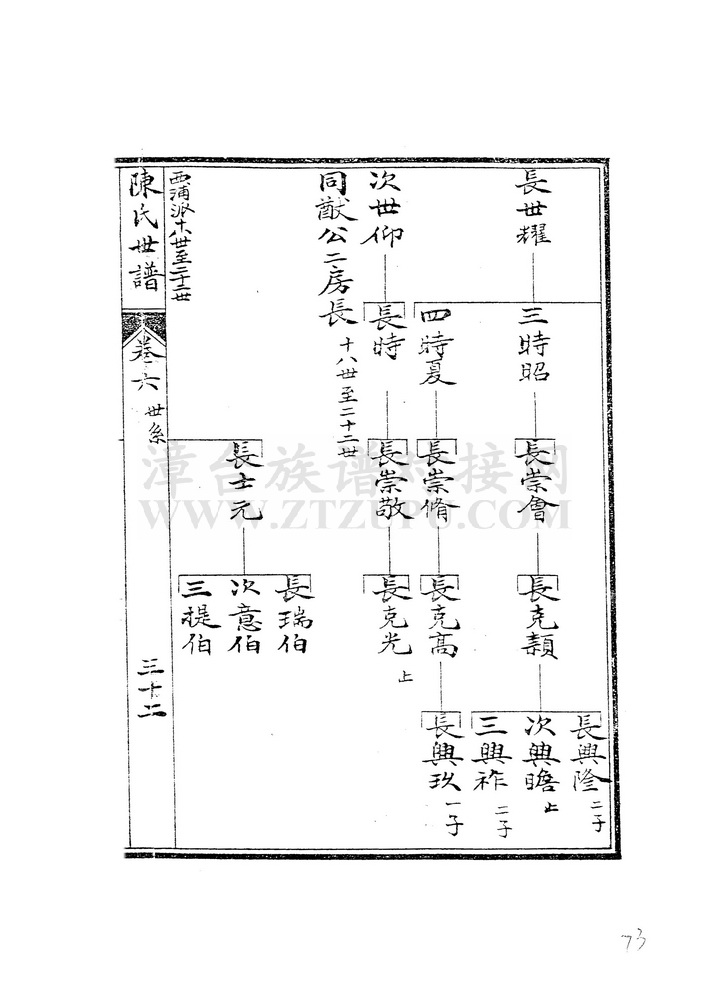 長世耀
三時昭
長崇會
長克顡
長興隆 二子
次興瞻 止
三興祚 二子
四時夏
長崇脩
長克高
長興玖 一子
次世仰
長時
長崇敬
長克光 止
同猷公二房長 十八世至二十二世
長士元
長瑞伯
次意伯
三提伯
西浦派十八世至二十二世
陳氏世譜
卷六 世系
三十二
漳台族谱对接网
WWW.ZTZUPU.COM
73